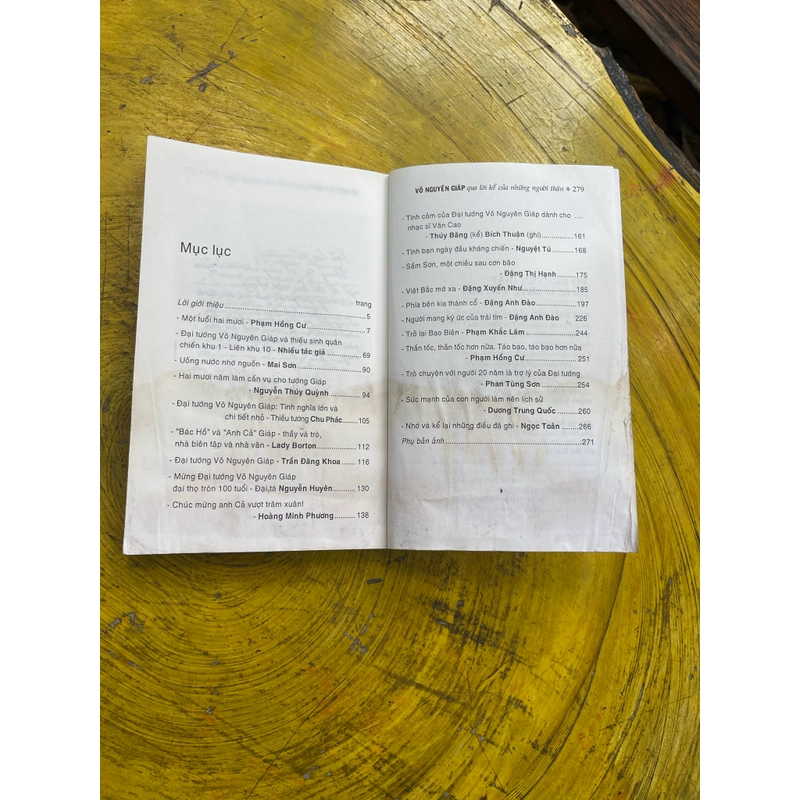 Mục lục
trang
Lời giới thiệu ........ 5
- Một tuổi hai mươi - Phạm Hồng Cư ........ 7
- Đại tướng Võ Nguyên Giáp và thiếu sinh quân
chiến khu 1 - Liên khu 10 - Nhiều tác giả ........ 69
- Uống nước nhớ nguồn - Mai Sơn ........ 90
- Hai mươi năm làm cần vụ cho tướng Giáp
- Nguyễn Thúy Quỳnh ........ 94
- Đại tướng Võ Nguyên Giáp: Tình nghĩa lớn và
chi tiết nhỏ - Thiếu tướng Chu Phác ........ 105
- "Bác Hồ" và "Anh Cả" Giáp - thầy và trò,
nhà biên tập và nhà văn - Lady Borton ........ 112
- Đại tướng Võ Nguyên Giáp - Trần Đăng Khoa ........ 116
- Mừng Đại tướng Võ Nguyên Giáp
đại thọ tròn 100 tuổi - Đại tá Nguyễn Huyên ........ 130
- Chúc mừng anh Cả vượt trăm xuân!
- Hoàng Minh Phương ........ 138
VÕ NGUYÊN GIÁP qua lời kể của những người thân ❖ 279
- Tình cảm của Đại tướng Võ Nguyên Giáp dành cho ....
nhạc sĩ Văn Cao
- Thúy Băng (kể) Bích Thuận (ghi) ........ 161
- Tình bạn ngày đầu kháng chiến - Nguyệt Tú ........ 168
- Sầm Sơn, một chiều sau cơn bão
- Đặng Thị Hạnh ........ 175
- Việt Bắc mờ xa - Đặng Xuyến Như ........ 185
- Phía bên kia thành cổ - Đặng Anh Đào ........ 197
- Người mang ký ức của trái tim - Đặng Anh Đào 226
- Trở lại Bao Biên - Phạm Khắc Lãm ........ 244
- Thần tốc, thần tốc hơn nữa. Táo bạo, táo bạo hơn nữa
- Phạm Hồng Cư ........ 251
- Trò chuyện với người 20 năm là trợ lý của Đại tướng
- Phan Tùng Sơn ........ 254
- Sức mạnh của con người làm nên lịch sử
- Dương Trung Quốc ........ 260
- Nhớ và kể lại những điều đã ghi - Ngọc Toản ........ 266
Phụ bản ảnh ........ 271